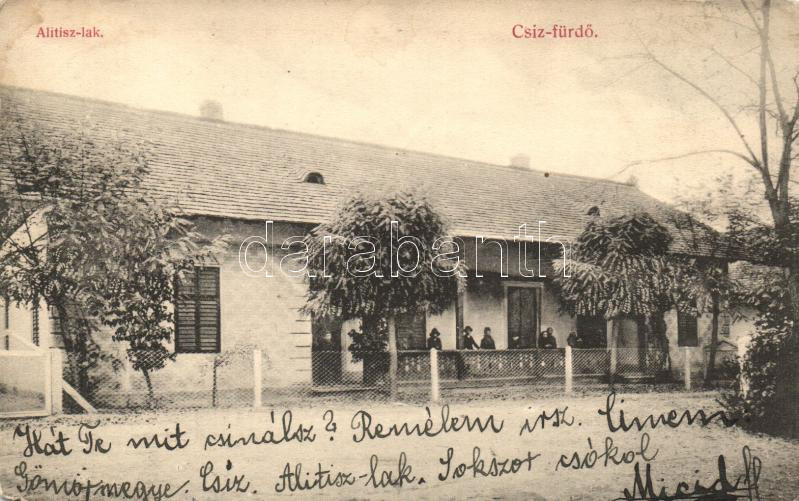 Alitisz-lak.
Csiz-fürdő.
darabanth.com
Hát Te mit csinálsz? Remélem irsz. Cimem
Gömörmegye. Csiz. Alitisz-lak. Sokszor csókol